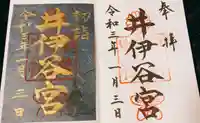 奉拝
井伊谷宮
令和三年一月三日
初詣
井伊谷宮
令和三年一月三日